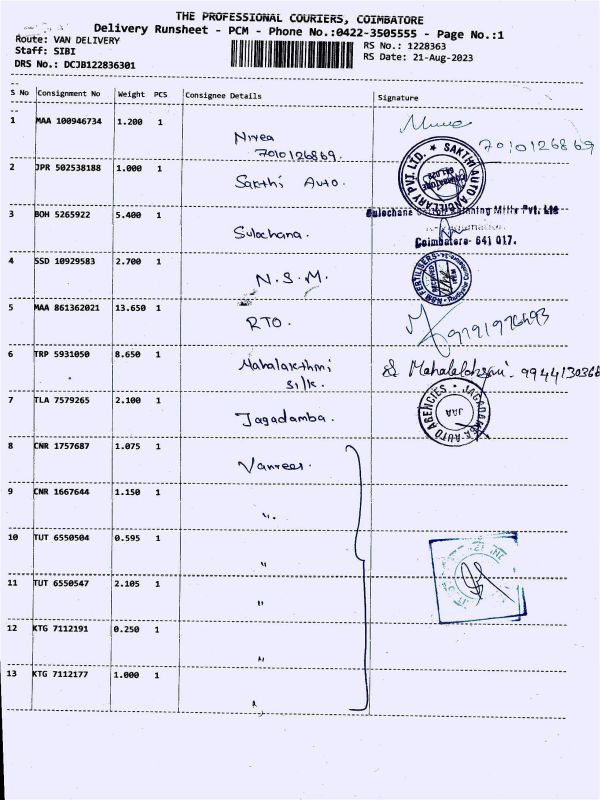 THE PROFESSIONAL COURIERS, COIMBATORE
Delivery Runsheet - PCM - Phone No.:0422-3505555 - Page No.:1
Route: VAN DELIVERY
Staff: SIBI
DRS No.: DCJB122836301
RS No.: 1228363
RS Date: 21-Aug-2023
S No Consignment No Weight PCS Consignee Details Signature
1 MAA 100946734 1.200 1 Nivea 7010126869
7010126869.
2 JPR 502538188 1.000 1 Sakthi Auto.
SAKTHI AUTO ANCILLARY PVT. LTD.
COIMBATORE
3 BOH 5265922 5.400 1 Sulochana.
Sulochana Cotton Spinning Mills Pvt. Ltd
Coimbatore- 641 017.
4 SSD 10929583 2.700 1 N.S.M.
FERTILISERS
5 MAA 861362021 13.650 1 RTO.
6 TRP 5931050 8.650 1 Mahalakthmi
silk.
9944130366
7 TLA 7579265 2.100 1 Jagadamba.
JAGADAMBA AUTO AGENCIES
JAA
8 CNR 1757687 1.075 1 Vanrees.
9 CNR 1667644 1.150 1 ".
10 TUT 6550504 0.595 1 "
11 TUT 6550547 2.105 1 "
12 KTG 7112191 0.250 1 "
13 KTG 7112177 1.000 1